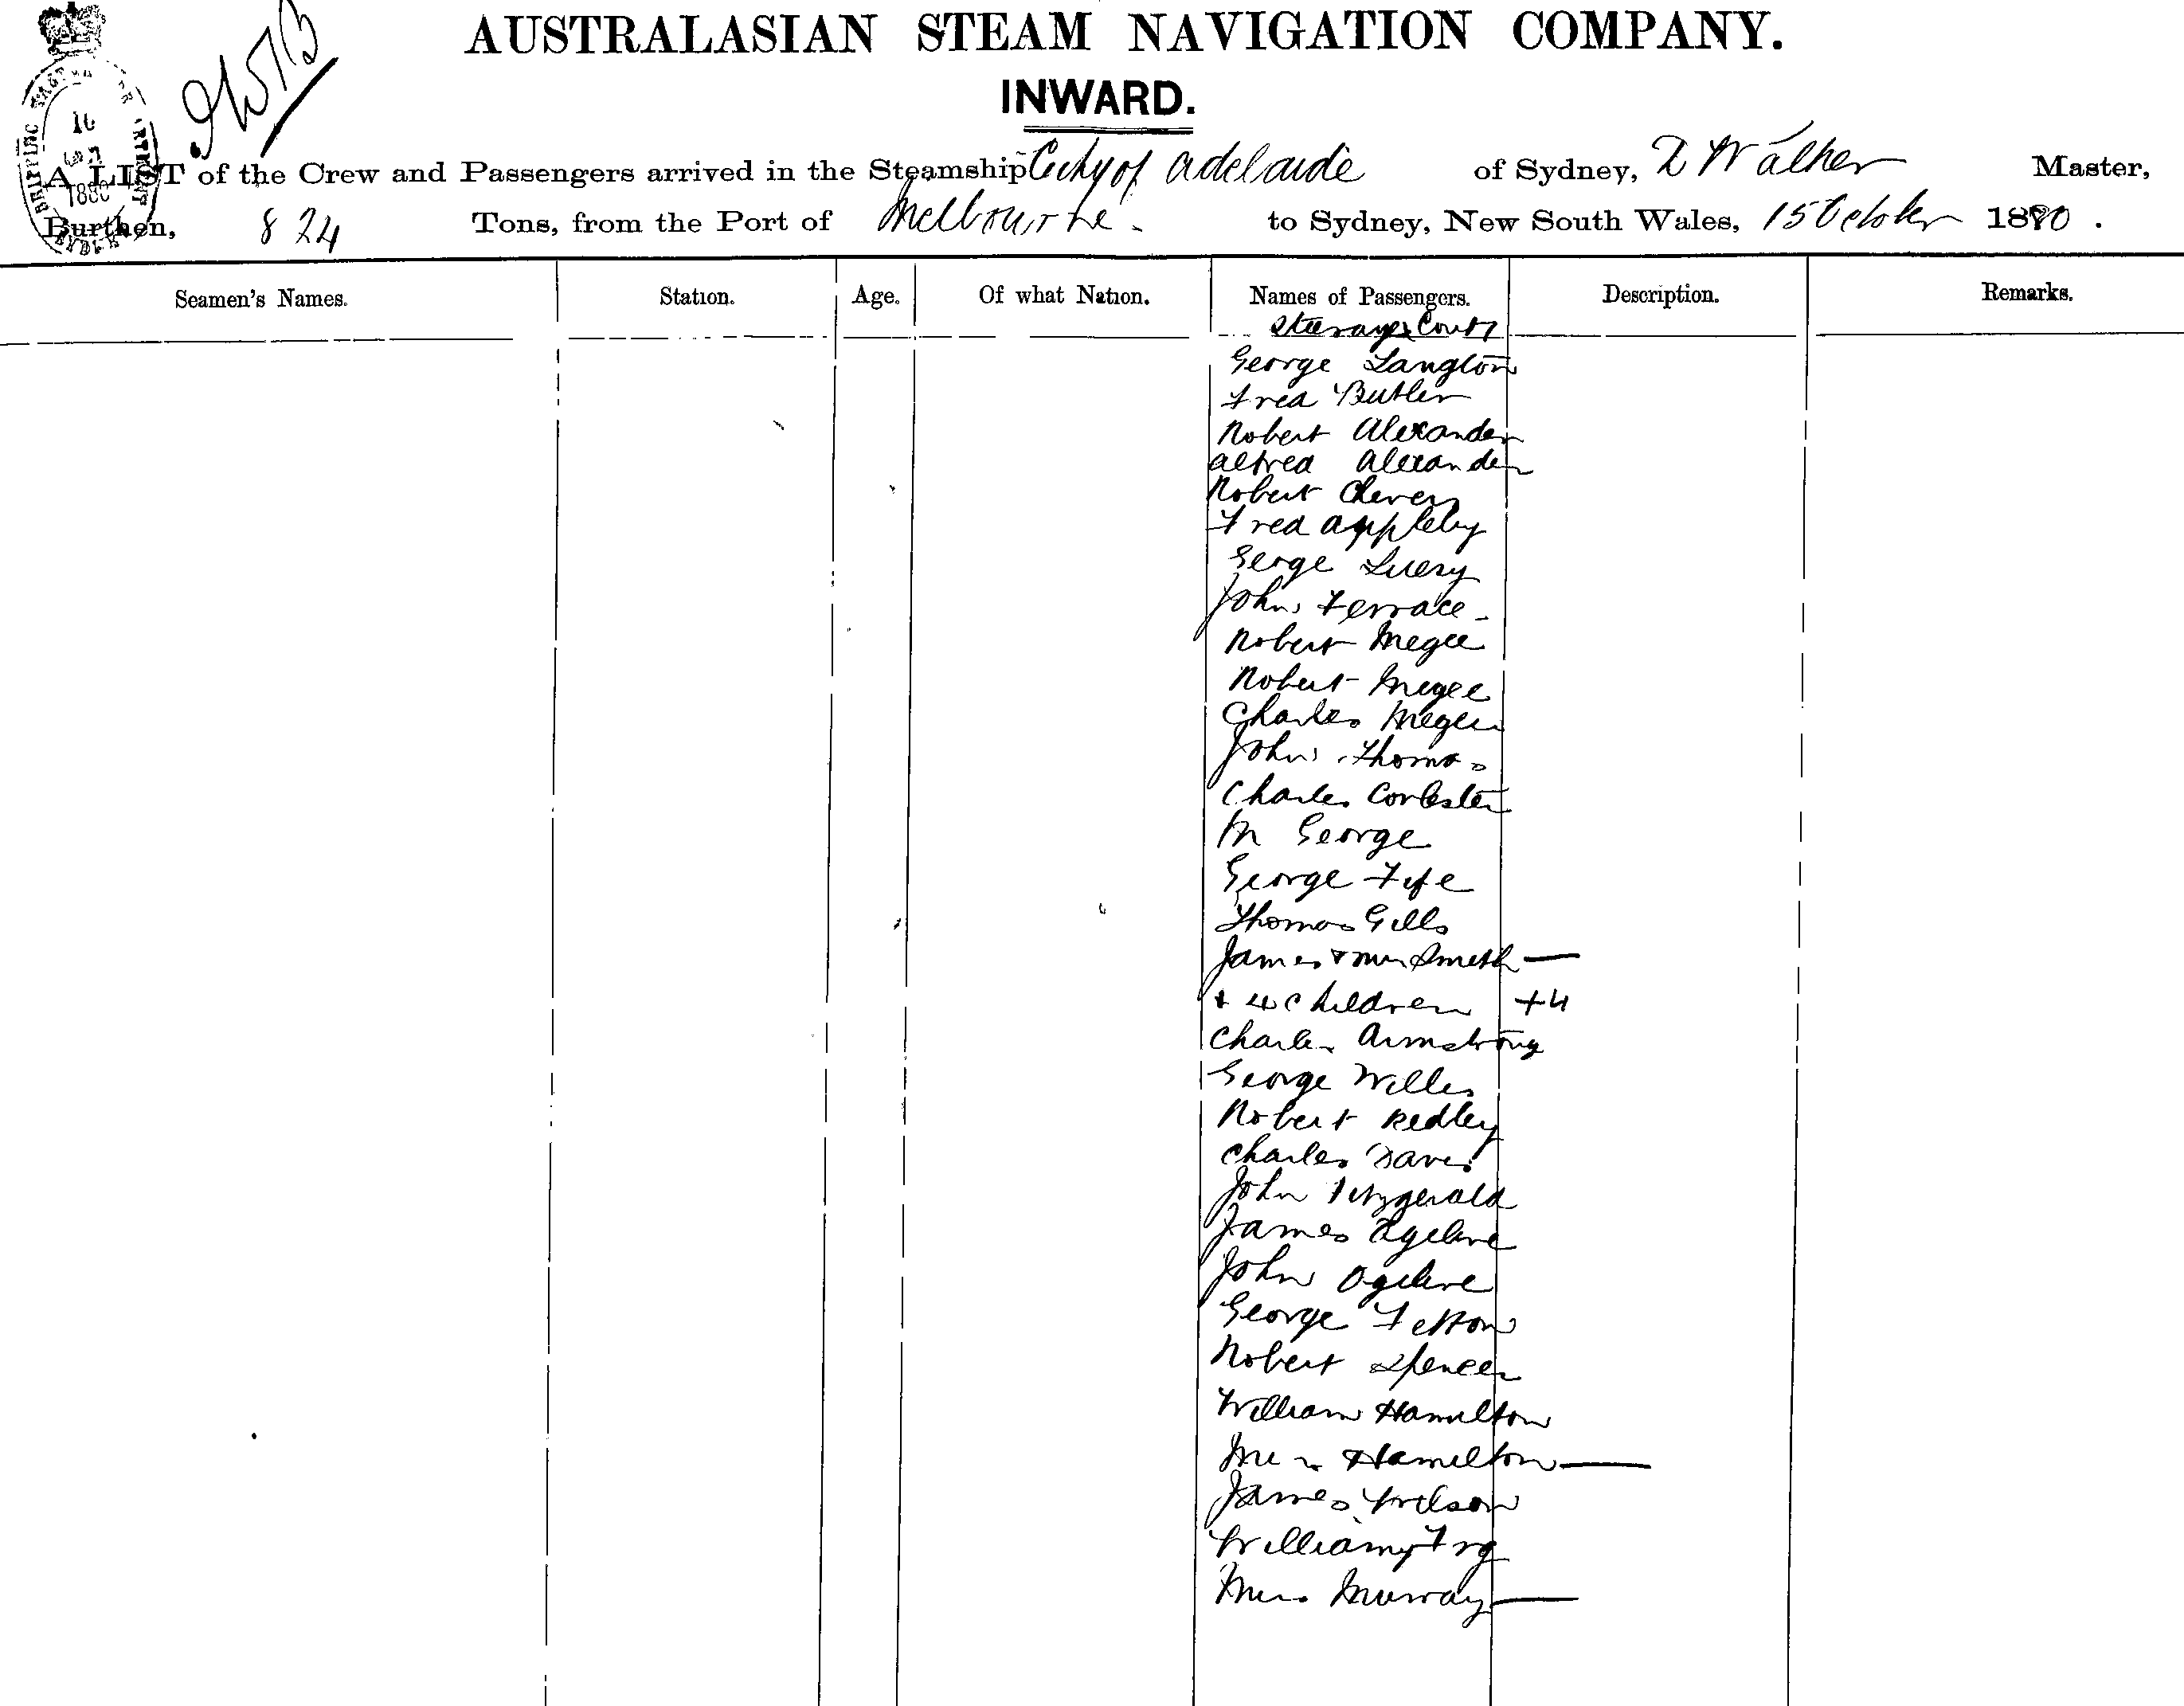 AUSTRALASIAN STEAM NAVIGATION COMPANY.
INWARD.
A LIST of the Crew and Passengers arrived in the Steamship City of Adelaide of Sydney, Walker Master,
Burthen, 824 Tons, from the Port of Melbourne. to Sydney, New South Wales, 15 October 1880.
Seamen's Names. Station. Age. Of what Nation. Names of Passengers. Description. Remarks.
Steerage Cont
George Langton
Fred Butler
Robert Alexander
Alfred Alexander
Robert
Fred Appleby
George
John Ferrace
Robert Megee
Robert Megee
Charles Megee
John Thomas
Charles
M George
George Fife
Thomas Gills
James & Mrs Smith —
+ 4 Children +4
Charles Armstrong
George Willes
Robert Redley
Charles Daves
John Fitzgerald
James Ogelive
John Ogilive
George
Robert Spencer
William Hamilton
Mrs Hamilton —
James Wilson
William
Mrs Murray —